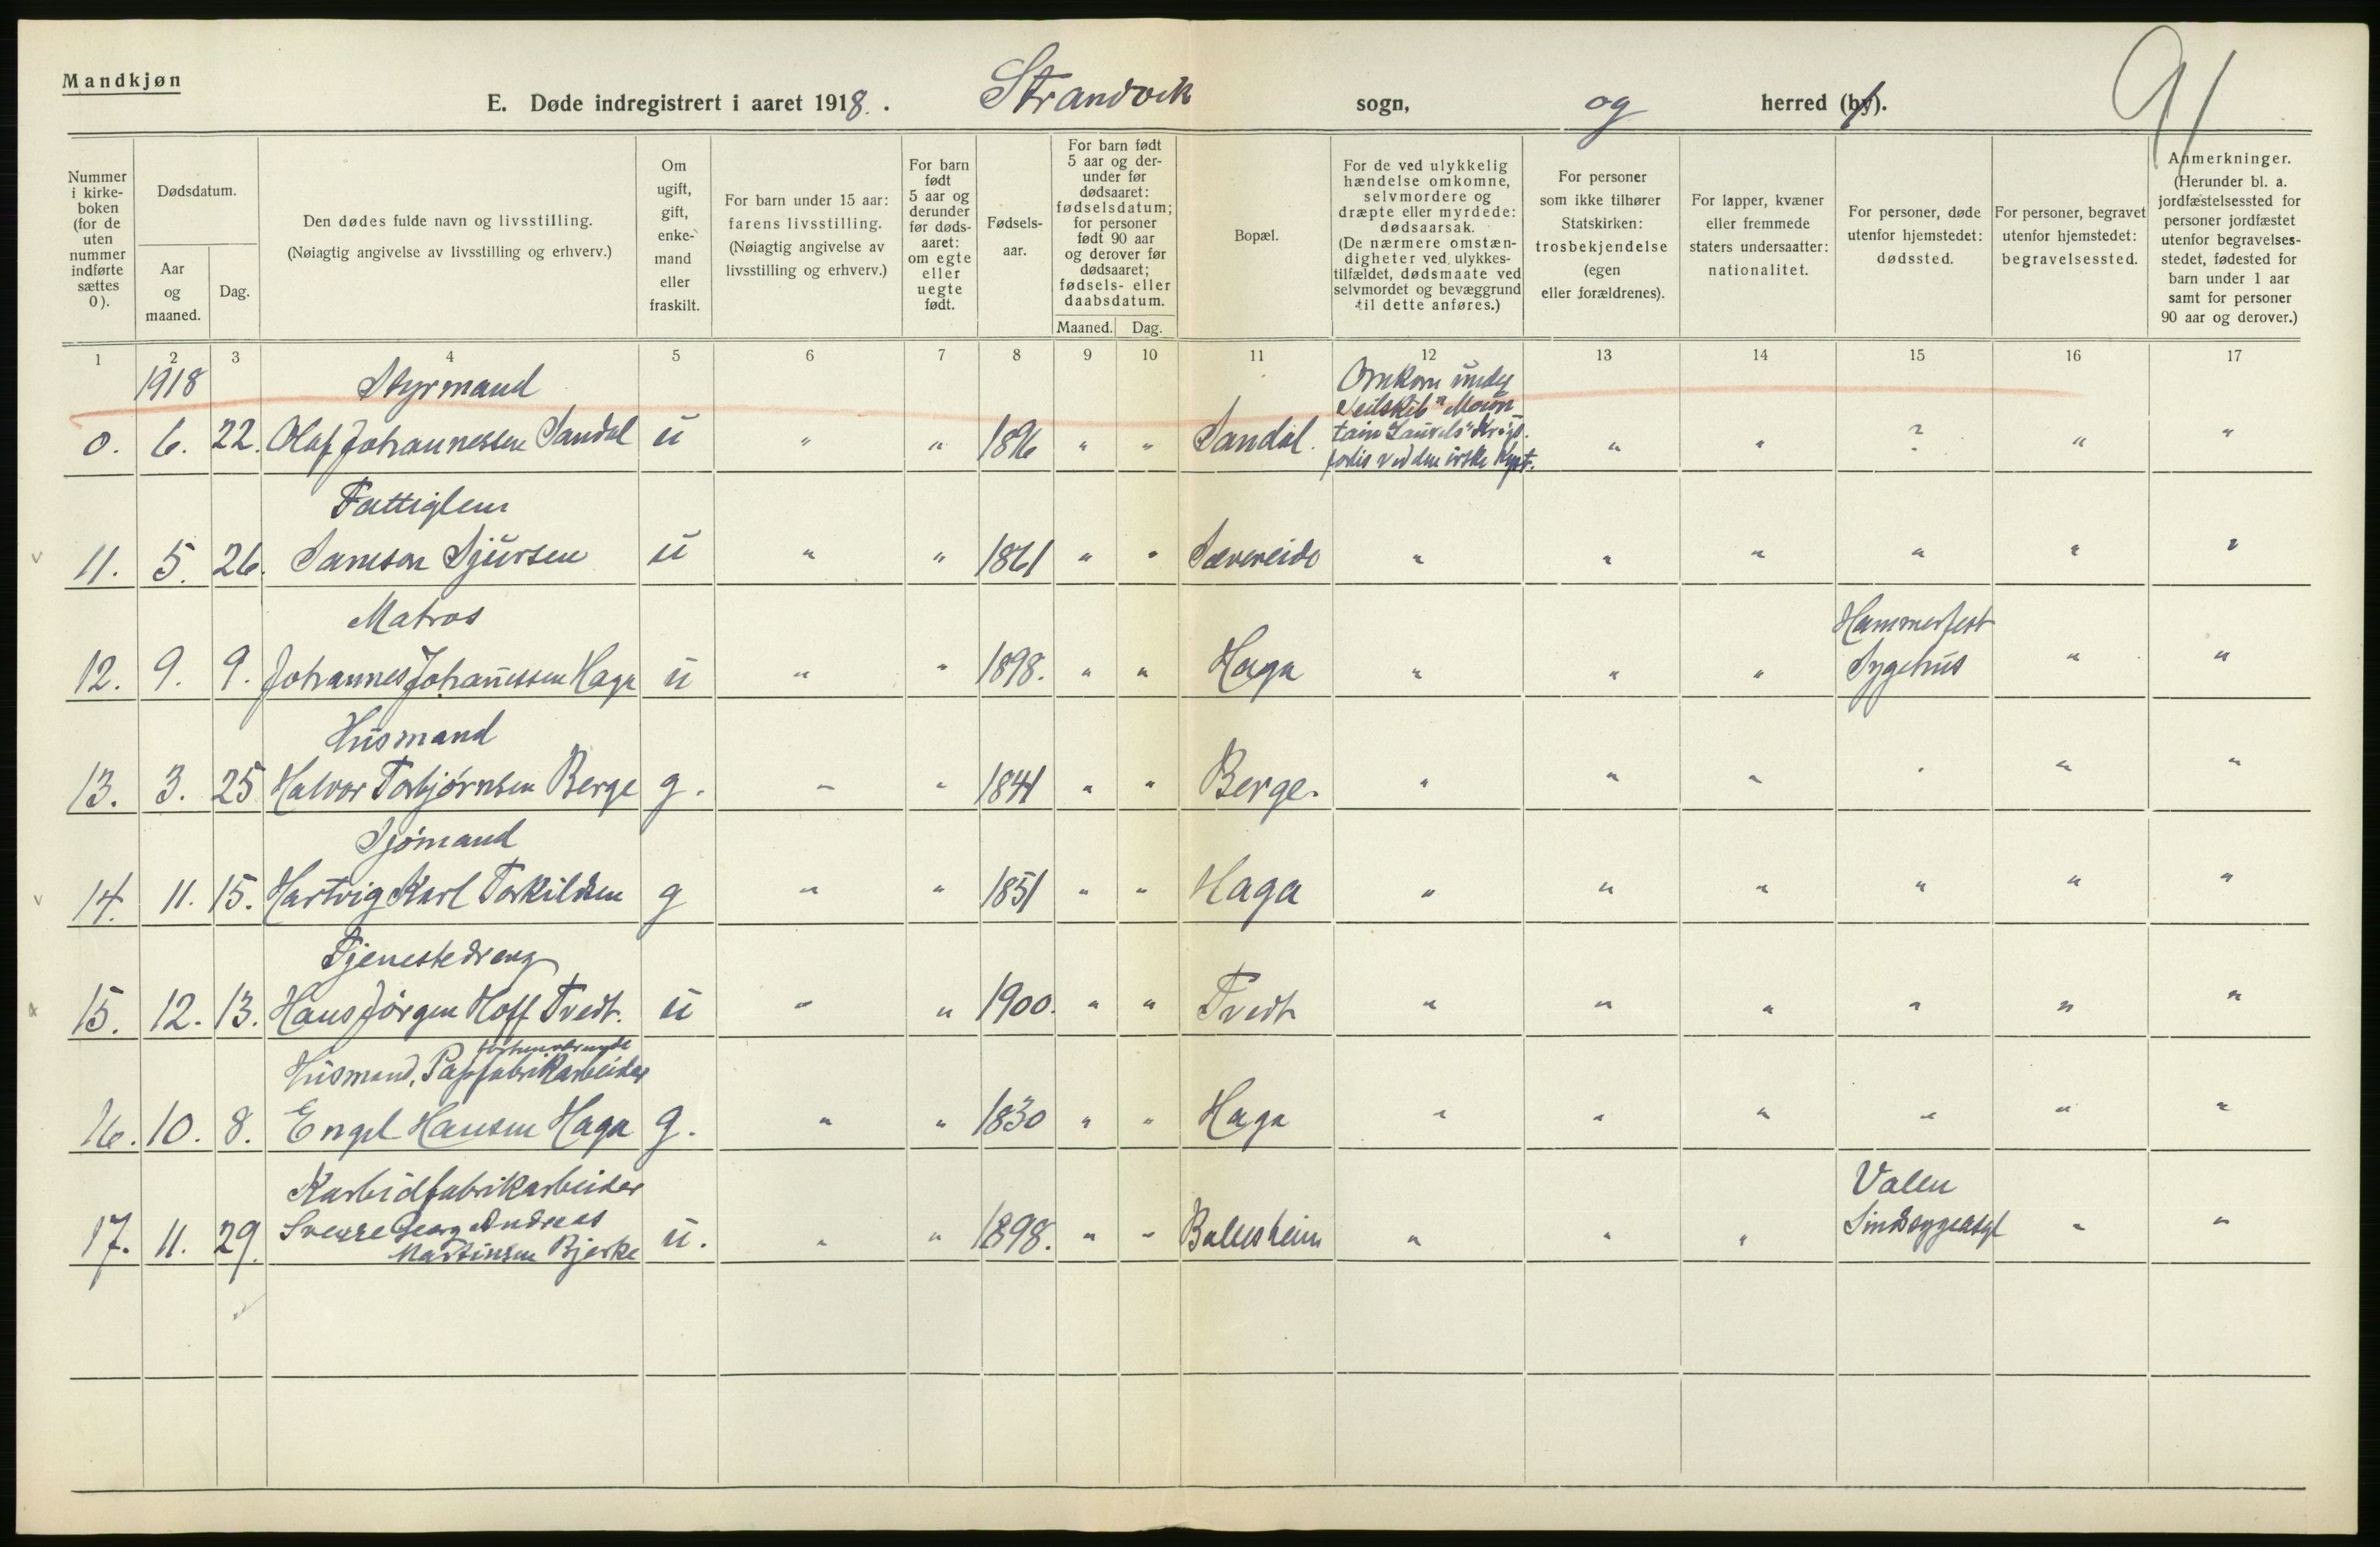 Mandkjøn
E. Døde indregistrert i aaret 1918. Strandvik sogn, og herred (by).
91
Nummer i kirke-boken (for de uten nummer indførte sættes 0).
Dødsdatum.
Aar og maaned.
Dag.
Den dødes fulde navn og livsstilling.
(Nøiagtig angivelse av livsstilling og erhverv.)
Om ugift, gift, enke-mand eller fraskilt.
For barn under 15 aar: farens livsstilling.
(Nøiagtig angivelse av livsstilling og erhverv.)
For barn født 5 aar og derunder før døds-aaret: om egte eller uegte født.
Fødsels-aar.
For barn født 5 aar og der-under før dødsaaret: fødselsdatum; for personer født 90 aar og derover før dødsaaret; fødsels- eller daabsdatum.
Maaned.
Dag.
Bopæl.
For de ved ulykkelig hændelse omkomne, selvmordere og dræpte eller myrdede: dødsaarsak.
(De nærmere omstæn-digheter ved ulykkes-tilfældet, dødsmaate ved selvmordet og bevæggrund til dette anføres.)
For personer som ikke tilhører Statskirken: trosbekjendelse (egen eller forældrenes).
For lapper, kvæner eller fremmede staters undersaatter: nationalitet.
For personer, døde utenfor hjemstedet: dødssted.
For personer, begravet utenfor hjemstedet: begravelsessted.
Anmerkninger.
(Herunder bl. a. jordfæstelsessted for personer jordfæstet utenfor begravelses-stedet, fødested for barn under 1 aar samt for personer 90 aar og derover.)
1 2 3 4 5 6 7 8 9 10 11 12 13 14 15 16 17
1918 Styrmand Omkom under
Seilskib "Moun
0. 6. 22. Olaf Johannessen Sandal u " " 1896 " " Sandal. tain Laurels" Krigs. " " ? " "
forlis ved den irske Kyst.
Fattiglem
11. 5. 26. Samson Sjursen u " " 1861 " " Sævereide " " " " " "
Matros Hammerfest
12. 9. 9. Johannes Johannessen Haga u " " 1898. " " Haga " " " Sygehus " "
Husmand
13. 3. 25 Halvor Torbjørnsen Berge g. " " 1841 " " Berge. " " " " " "
Sjømand
14. 11. 15. Hartvig Karl Torkildsen g " " 1851 " " Haga " " " " " "
Tjenestedreng
15. 12. 13. Hans Jörgen Hoff Tvedt. u " " 1900. " " Tvedt " " " " " "
Husmand, Papfabrikarbeider
16. 10. 8. Engel Hansen Haga g. " " 1830 " " Haga " " " " " "
Karbidfabrikarbeider Valen
17. 11. 29. Sverre Georg Andreas u. " " 1898. " " Ballesheim " " " Sindssygeasyl " "
Martinsen Bjerke